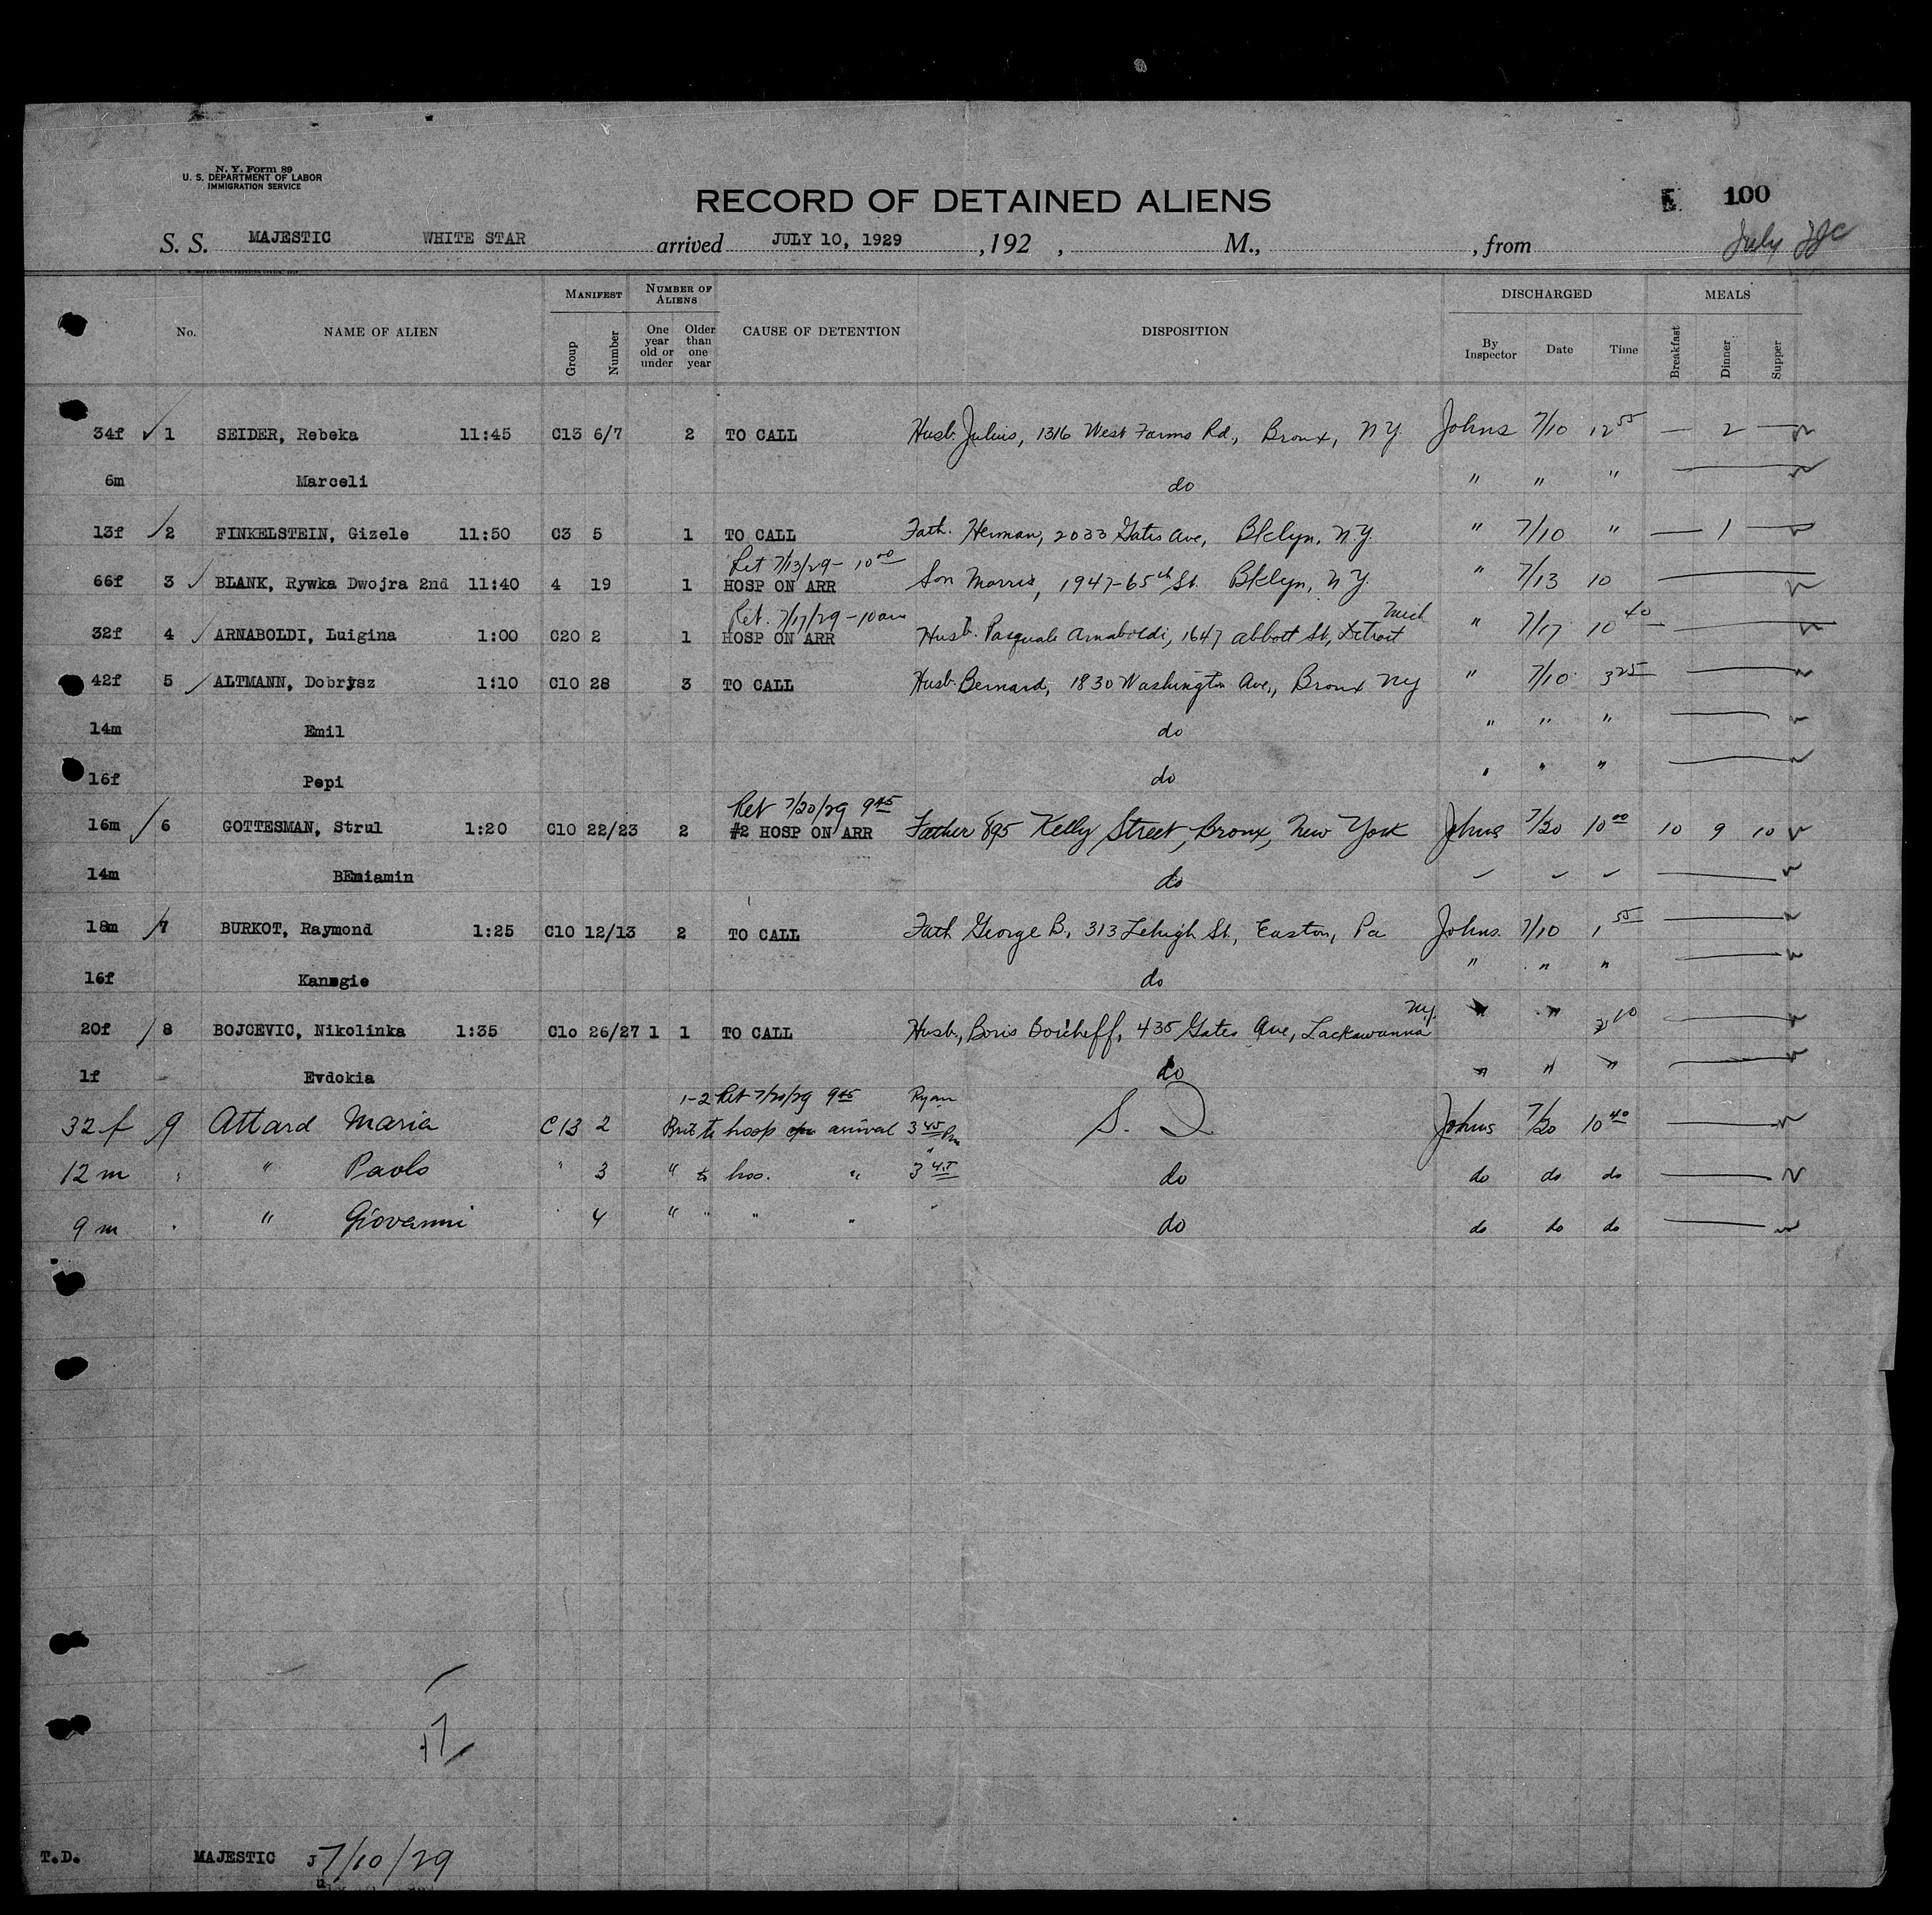 N. Y. Form 89
U. S. DEPARTMENT OF LABOR
IMMIGRATION SERVICE
RECORD OF DETAINED ALIENS
100
S. S. MAJESTIC WHITE STAR arrived JULY 10, 1929 , 192 , M., , from
July
MANIFEST NUMBER OF ALIENS DISCHARGED MEALS
No. NAME OF ALIEN Group Number One year old or under Older than one year CAUSE OF DETENTION DISPOSITION By Inspector Date Time Breakfast Dinner Supper
34f 1 SEIDER, Rebeka 11:45 C13 6/7 2 TO CALL Husb. Julius, 1316 West Farms Rd., Bronx, NY Johns 7/10 12 55 — 2 —
6m Marceli do " " "
13f 2 FINKELSTEIN, Gizele 11:50 C3 5 1 TO CALL Fath. Herman, 2033 Gates Ave, Bklyn, N.Y. " 7/10 " — 1 —
Ret 7/13/29 - 10 00
66f 3 BLANK, Rywka Dwojra 2nd 11:40 4 19 1 HOSP ON ARR Son Morris, 1947-65th St. Bklyn, N.Y. " 7/13 10
Ret. 7/17/29 - 10 am
32f 4 ARNABOLDI, Luigina 1:00 C20 2 1 HOSP ON ARR Husb. Pasquale Arnaboldi, 1647 Abbott St, Detroit Mich " 7/17 10 40
42f 5 ALTMANN, Dobrysz 1:10 C10 28 3 TO CALL Husb. Bernard, 1830 Washington Ave., Bronx NY " 7/10 3 25
14m Emil do " " "
16f Pepi do " " "
Ret 7/20/29 9 45
16m 6 GOTTESMAN, Strul 1:20 C10 22/23 2 #2 HOSP ON ARR Father 895 Kelly Street, Bronx, New York Johns 7/20 10 00 10 9 10
14m BEniamin do
18m 7 BURKOT, Raymond 1:25 C10 12/13 2 TO CALL Fath George B. 313 Lehigh St., Easton, Pa Johns. 7/10 1 55
16f Kanegie do " " "
20f 8 BOJCEVIC, Nikolinka 1:35 C1o 26/27 1 1 TO CALL Husb., Boris Boicheff, 435 Gates Ave, Lackawanna N.Y. " " 3 10
1f Evdokia do " " "
1-2 Ret 7/20/29 9 45 Ryan
32 f 9 Attard Maria C13 2 Brit to hosp on arrival 3 45 Pm S. I. Johns 7/20 10 40
12 m " Paolo " 3 " to hos. " 3 45 do do do do
9 m " Giovanni 4 " " " " " do do do do
17
T.D. MAJESTIC J 7/10/29